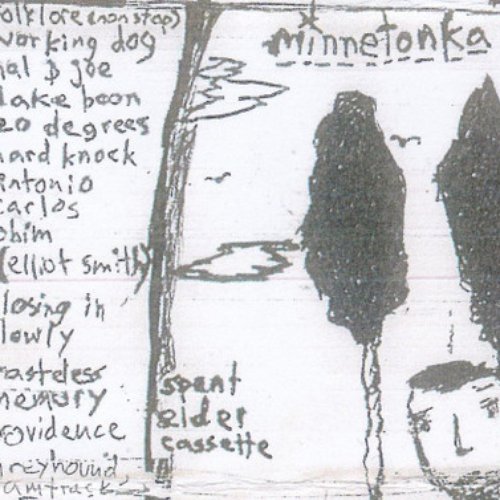 folklore (nonstop)
working dog
hal & joe
lake boon
20 degrees
hard knock
antonio
carlos
ohim
(elliot smith)
closing in
slowly
tasteless
memory
providence
greyhound
amtrack
minnetonka
spent
elder
cassette